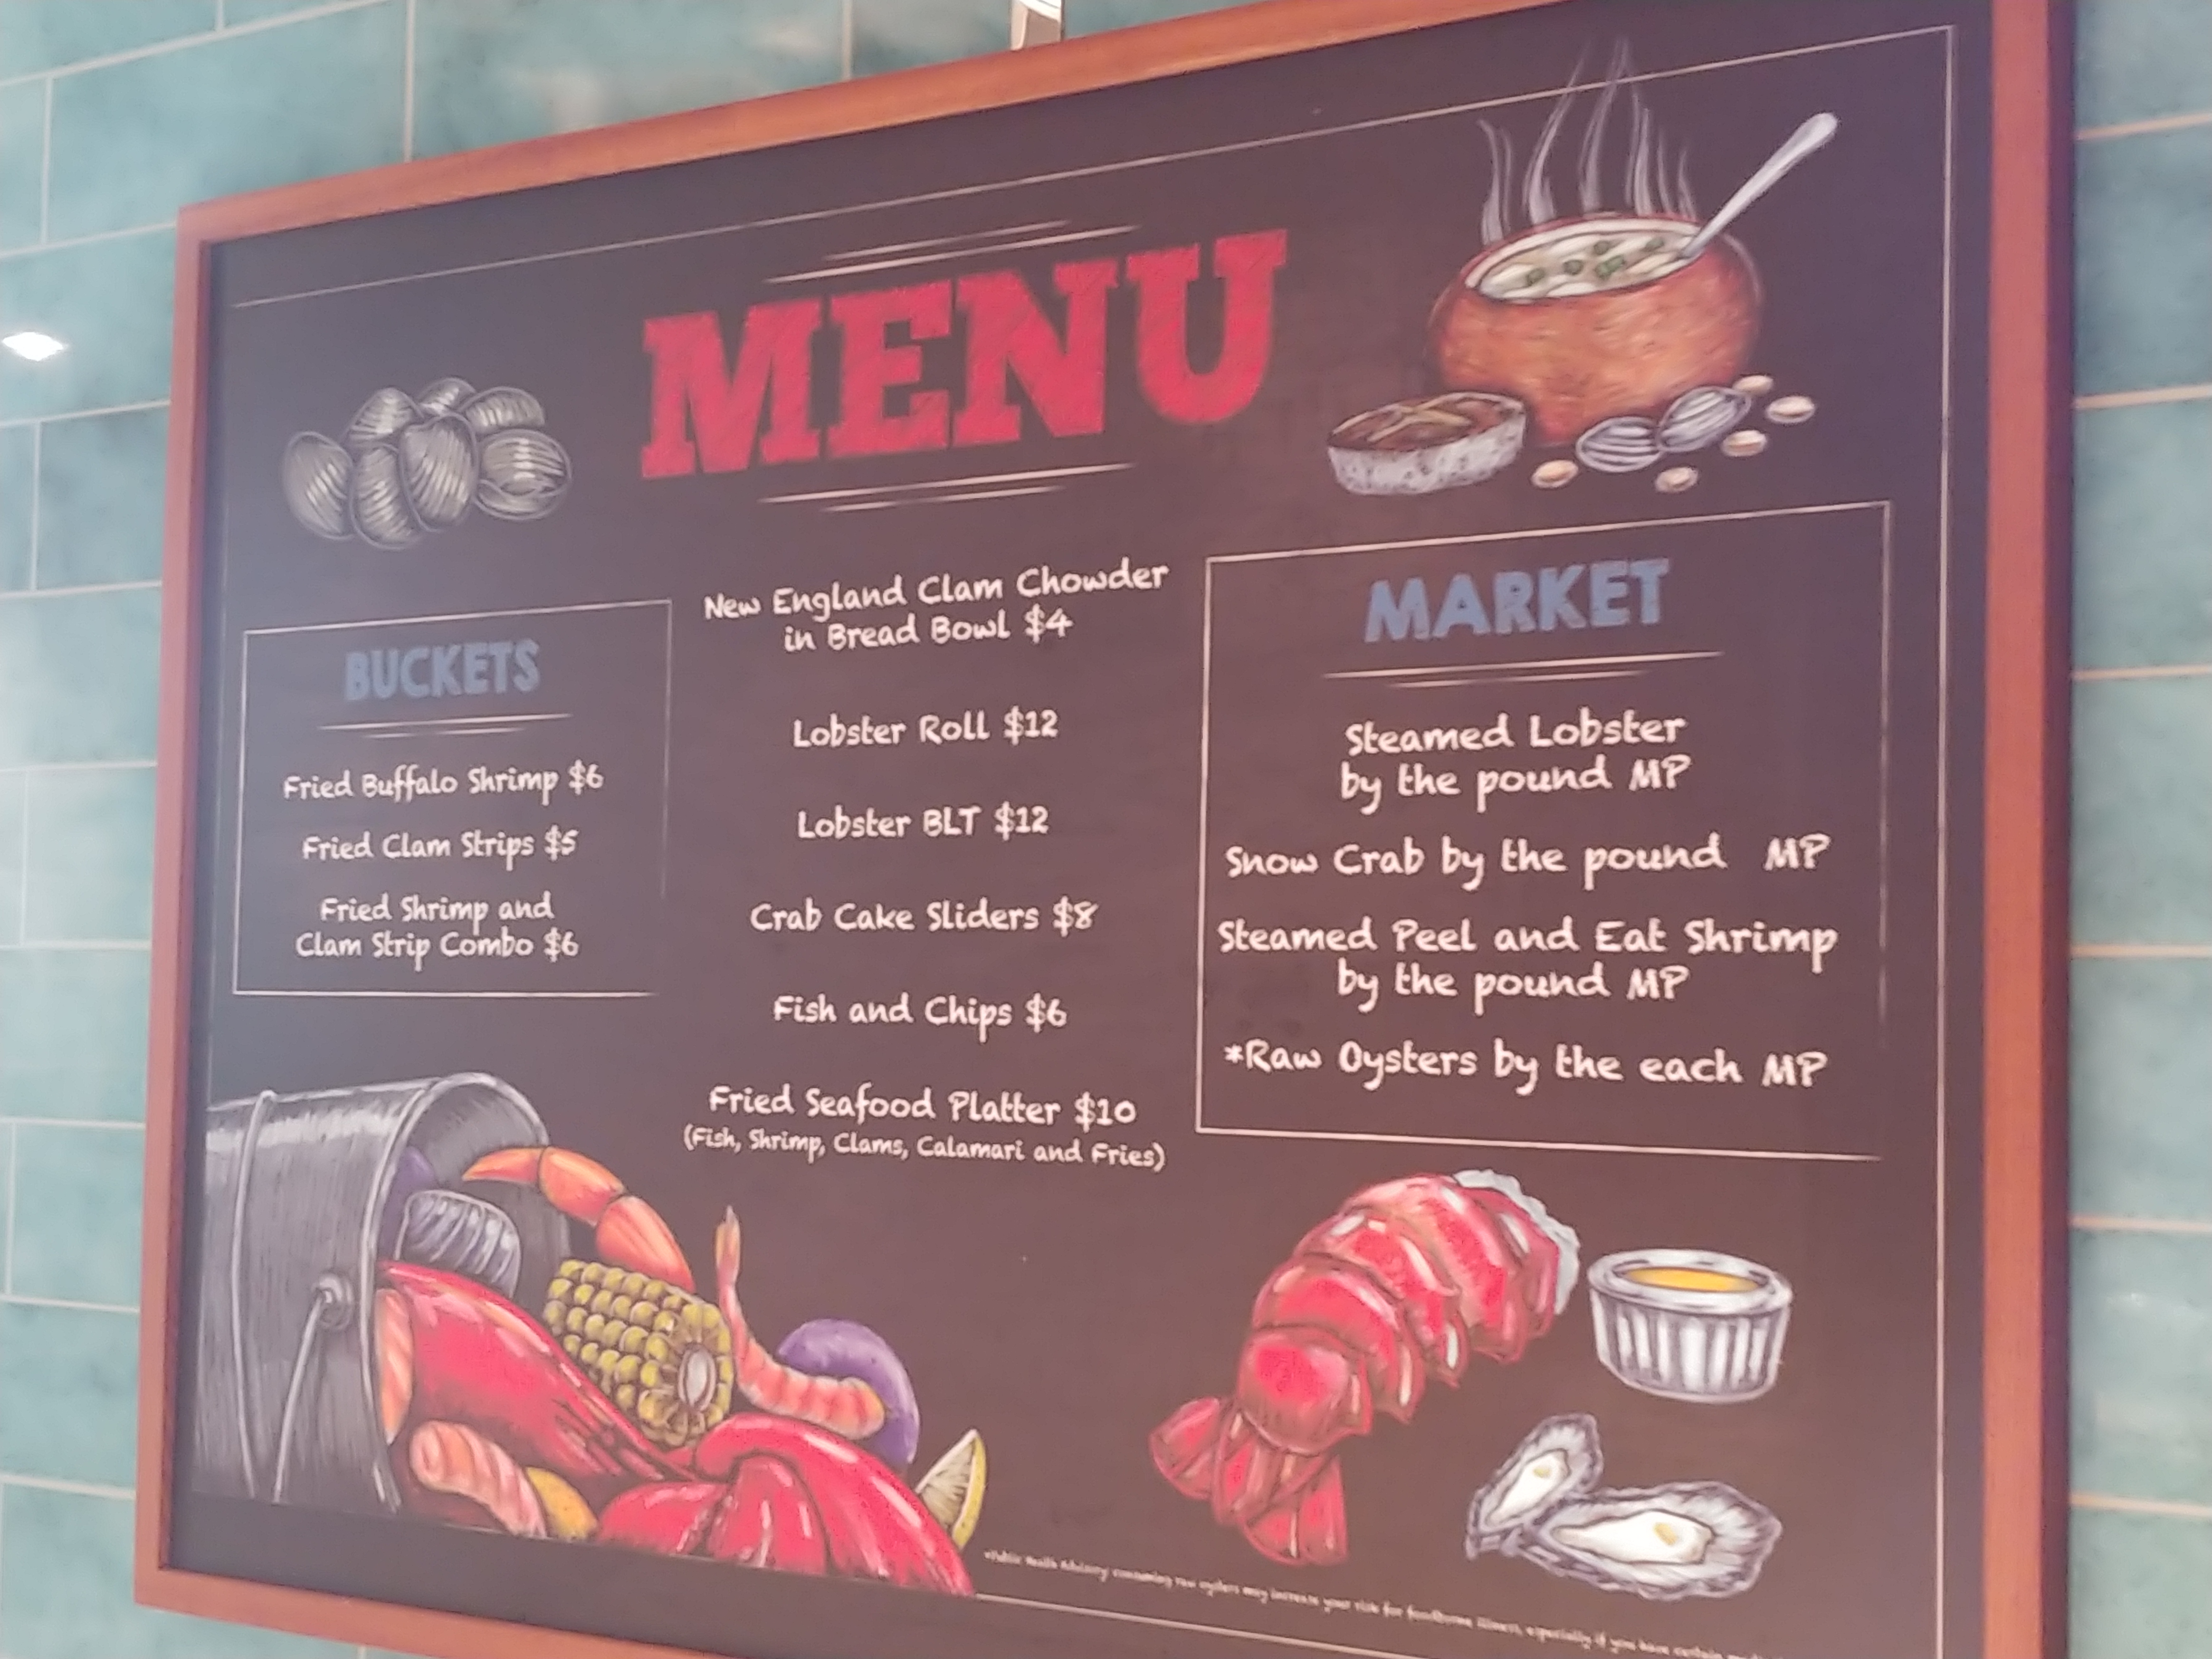 MENU
BUCKETS
Fried Buffalo Shrimp $6
Fried Clam Strips $5
Fried Shrimp and
Clam Strip Combo $6
New England Clam Chowder
in Bread Bowl $4
Lobster Roll $12
Lobster BLT $12
Crab Cake Sliders $8
Fish and Chips $6
Fried Seafood Platter $10
(Fish, Shrimp, Clams, Calamari and Fries)
MARKET
Steamed Lobster
by the pound MP
Snow Crab by the pound MP
Steamed Peel and Eat Shrimp
by the pound MP
*Raw Oysters by the each MP
*Public Health Advisory: consuming raw oysters may increase your risk for foodborne illness, especially if you have certain